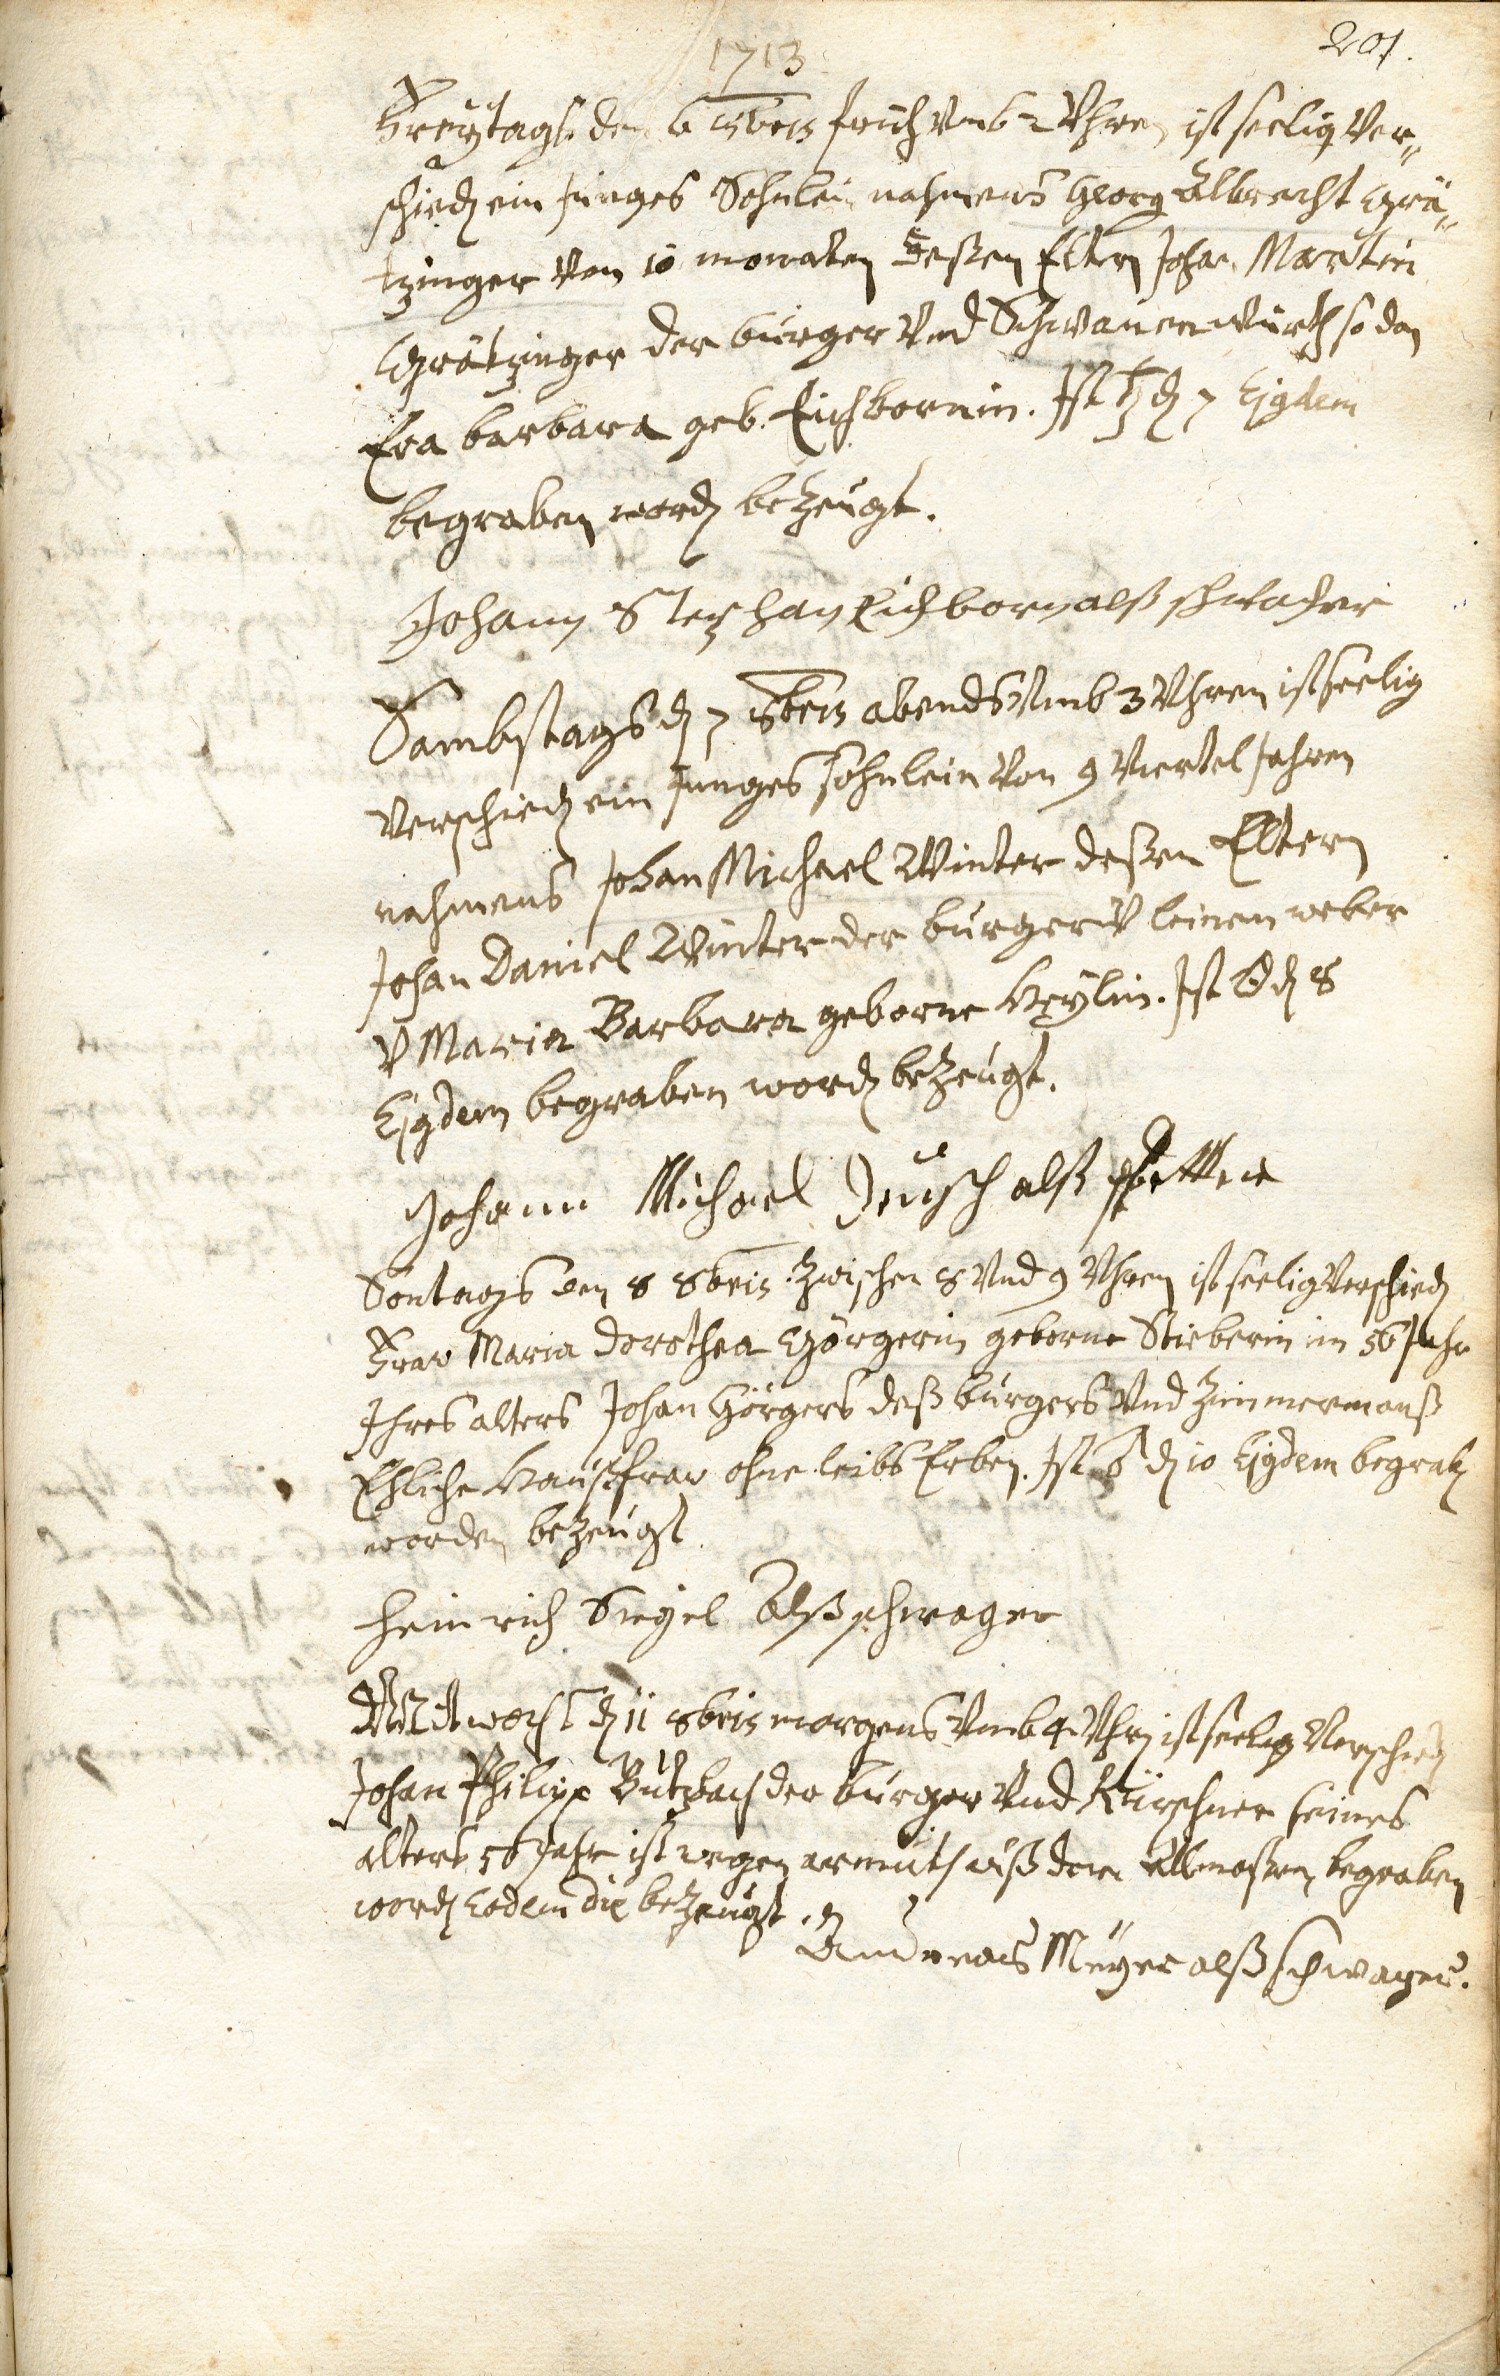 1713
201.
Freytags den 6 8bris früh umb 2 Uhren ist seelig ver-
schiedn ein Junges Söhnlein nahmens Georg Albrecht Grä-
tzinger von 10 monaten deßen Eltern Johan Martin
Grätzinger der burger und Schwanenwürth so dan
Eva barbara geb. Eichbornin. Ist ♄ dn 7 Ejgdem
begraben wordn bezeugt.
Johann Stephan Eichborn alß
Sambstags dn 7 8bris abends umb 3 Uhren ist seelig
verschiedn ein Junges söhnlein von 9 viertel Jahren
nahmens Johan Michael Winter deßen Eltern
Johan Daniel Winter der burger v leinenweber
v Maria Barbara geborne Heylin. Ist ☉ dn 8
Ejgdem begraben wordn bezeugt.
Johann Michael Jeusch alß Petter
Sontags den 8 8bris zwischen 8 und 9 Uhren ist seelig verschiedn
Frav Maria Dorothea Görgerin geborne Stieberin im 56 Jahr
Ihres alters Johan Görgers deß burgers und Zimmermanß
Ehliche Haußfrav ohne leibs Erben. Ist ♂ dn 10 Ejgdem begrabn
worden bezeugt
Heinrich Siegel Alß schwager
Mitwochs dn 11 8bris morgens umb 4 Uhrn ist seelig verschiedn
Johan Philipp Butzbach der burger und Kürschner seines
alters 56 Jahr ist wegen armuth auß dem Allmoßen begraben
wordn eodem die bezeugt
Andreas Meyer alß schwager.